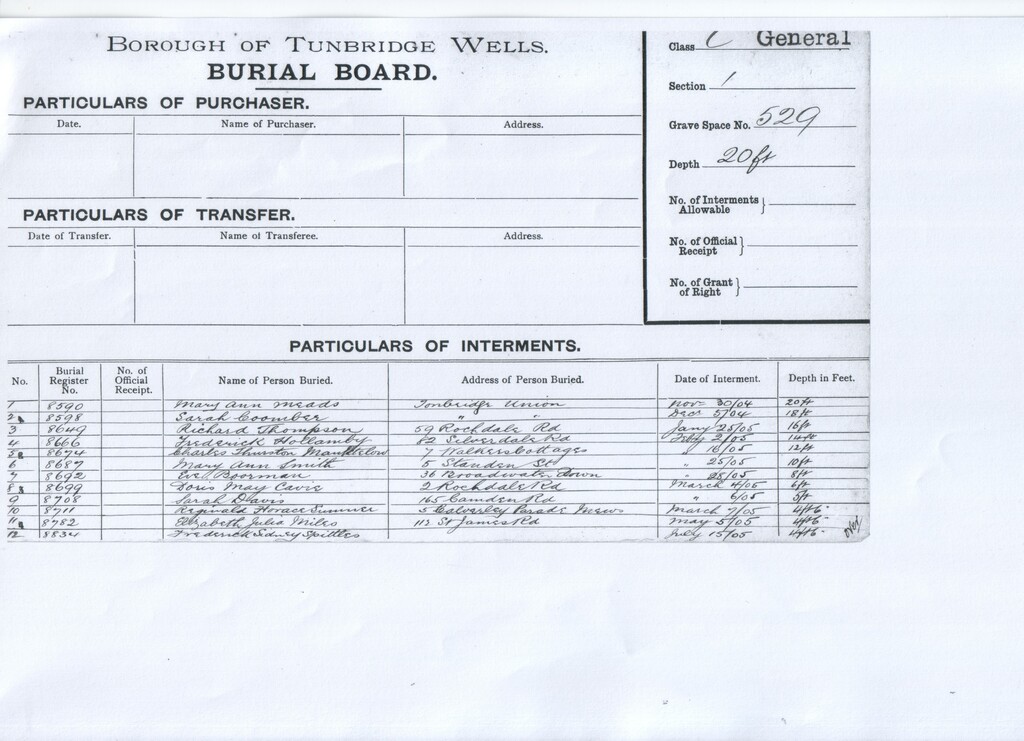 BOROUGH OF TUNBRIDGE WELLS.
BURIAL BOARD.
Class C General
Section 1
Grave Space No. 529
Depth 20ft
No. of Interments Allowable }
No. of Official Receipt }
No. of Grant of Right }
PARTICULARS OF PURCHASER.
Date. Name of Purchaser. Address.
PARTICULARS OF TRANSFER.
Date of Transfer. Name of Transferee. Address.
PARTICULARS OF INTERMENTS.
No. Burial Register No. No. of Official Receipt. Name of Person Buried. Address of Person Buried. Date of Interment. Depth in Feet.
1 8590 Mary Ann Meads Tonbridge Union Nov 30/04 20ft
2 8598 Sarah Coomber " " Dec 5/04 18ft
3 8649 Richard Thompson 59 Rochdale Rd Jany 25/05 16ft
4 8666 Frederick Hollamby 82 Silverdale Rd Feby 2/05 14ft
5 8674 Charles Thurston 7 Walkers Cottages " 16/05 12ft
6 8687 Mary Ann Smith 5 Standen St " 25/05 10ft
7 8692 Eve Boorman 36 Broadwater Down " 28/05 8ft
8 8699 Doris May Cavie 2 Rochdale Rd March 4/05 6ft
9 8708 Sarah Davis 165 Camden Rd " 6/05 5ft
10 8711 Reginald Horace Sumner 5 Calverley Parade Mews March 7/05 4ft6
11 8782 Elizabeth Julia Miles 113 St James Rd May 5/05 4ft6
12 8834 Frederick Sidney Spittles July 15/05 4ft6
over